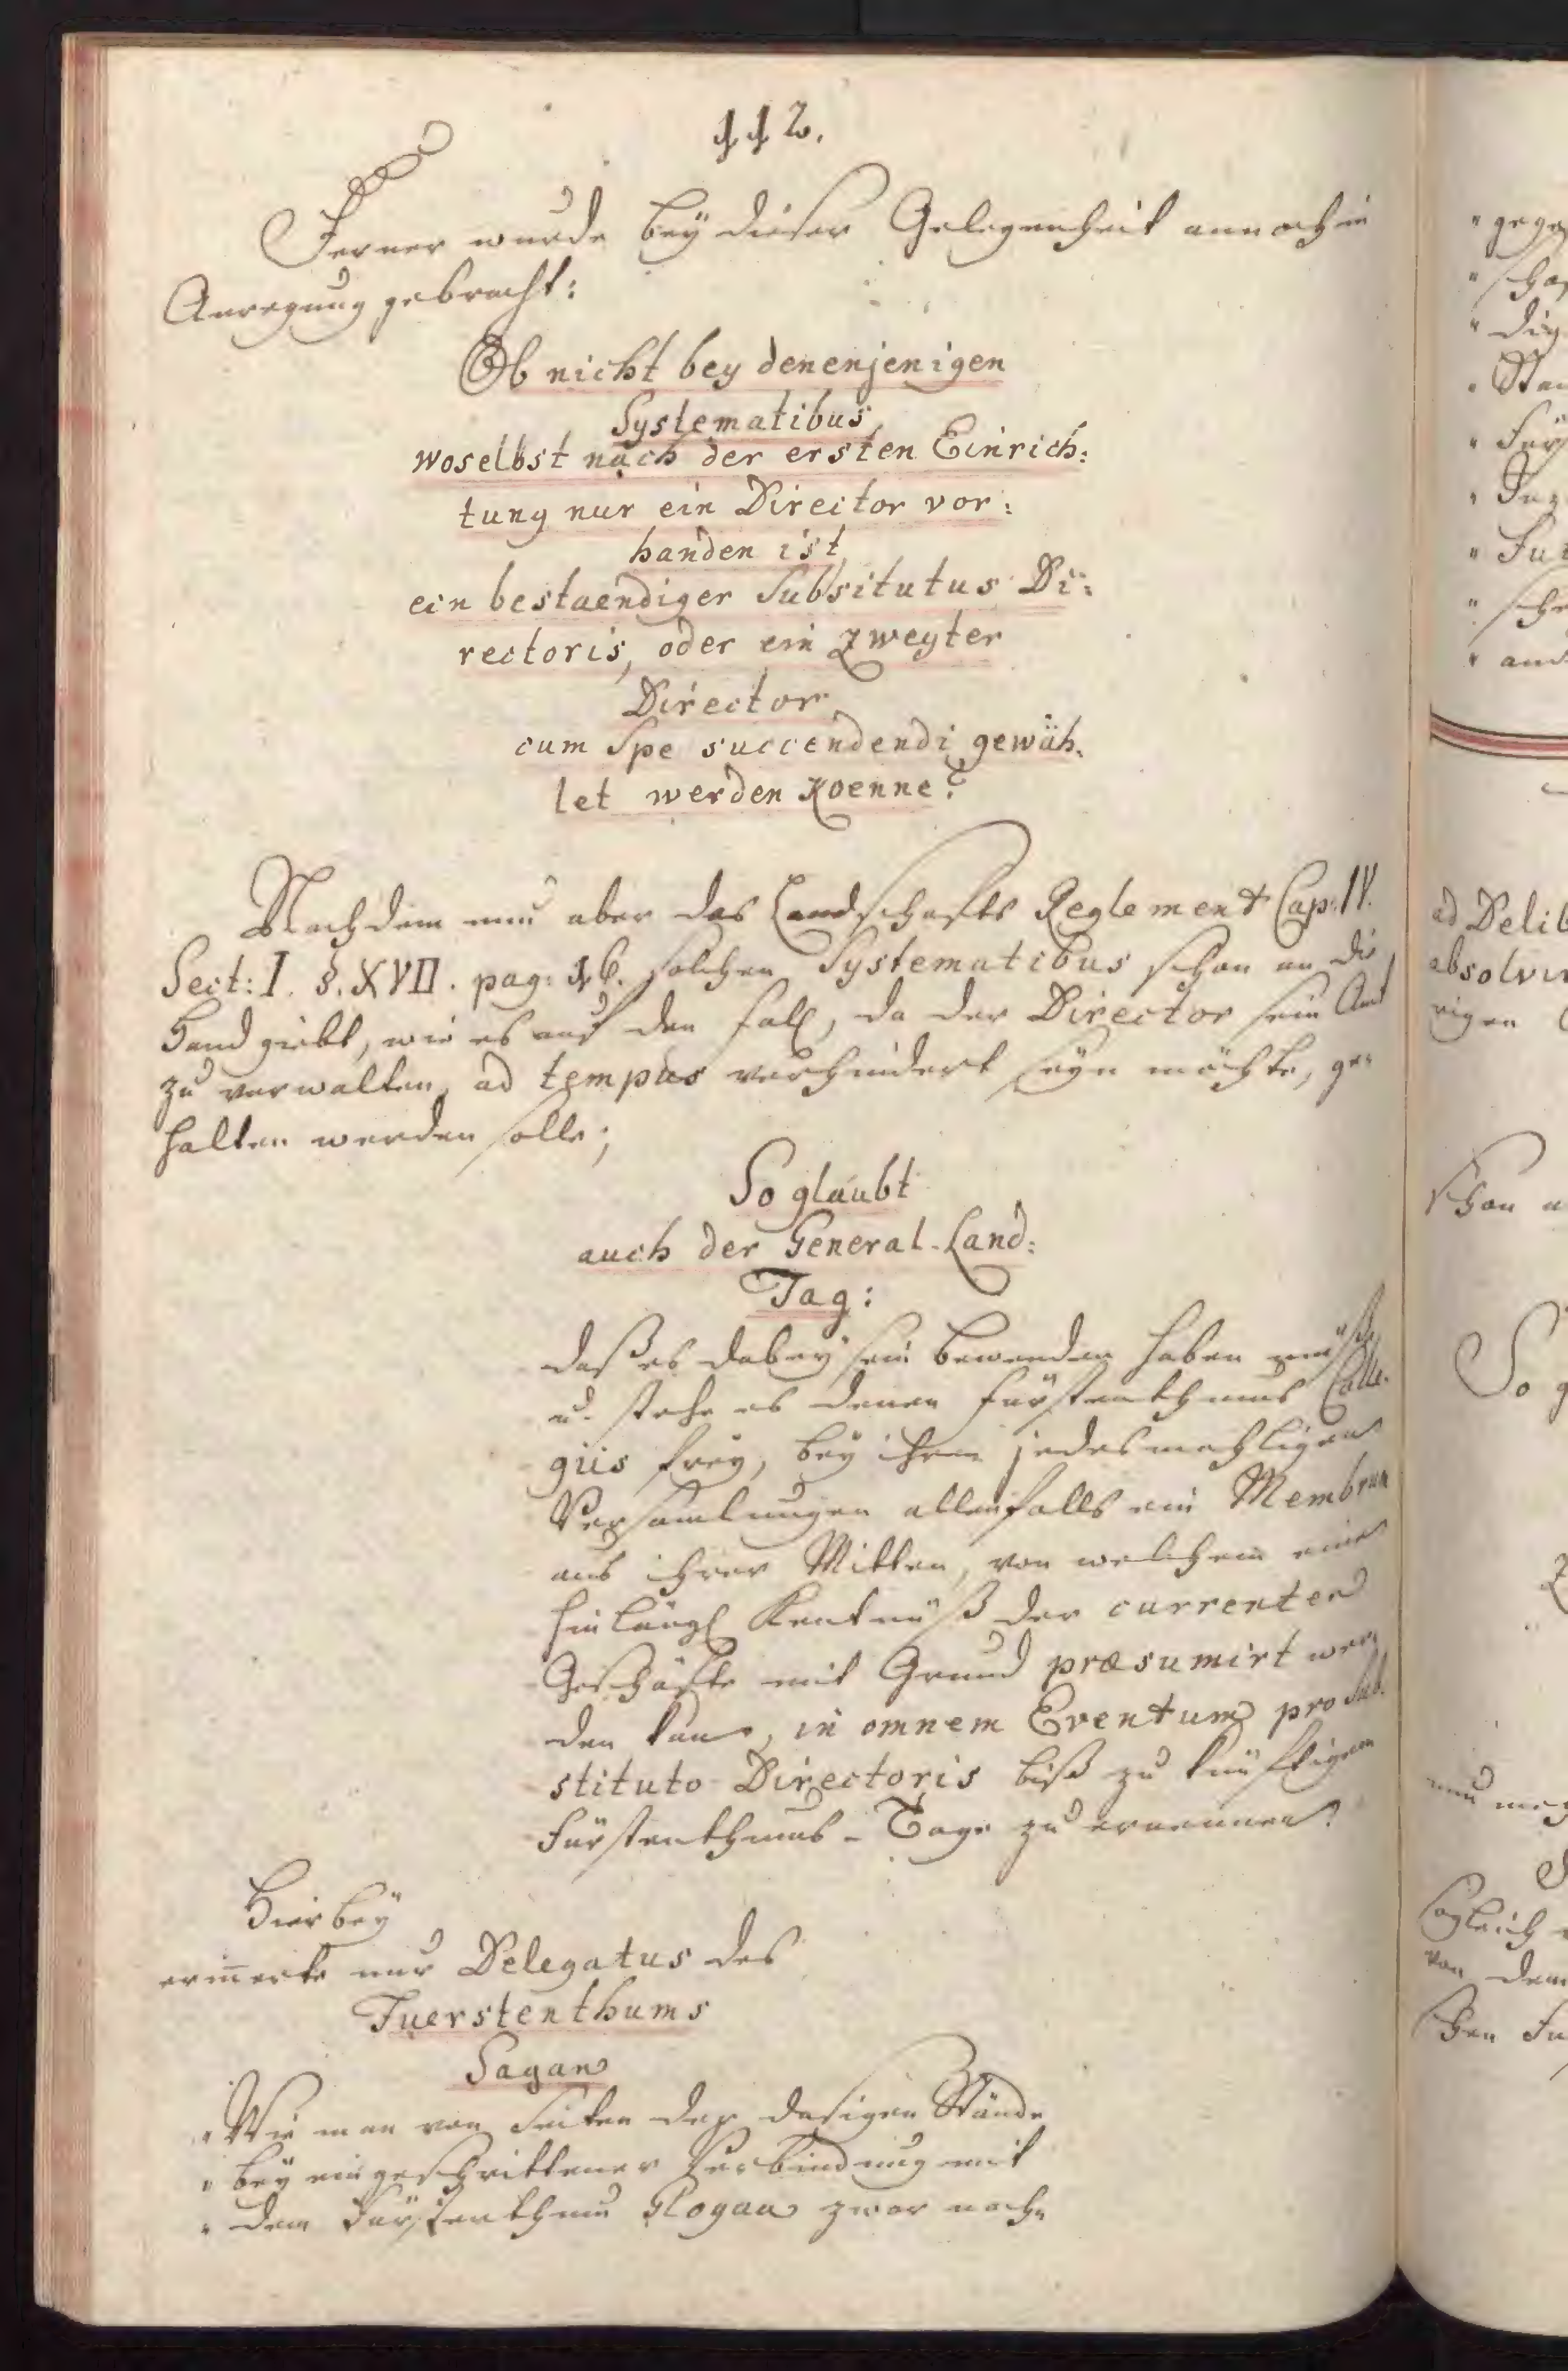 112.
Ferner wurde bey dieser Gelegenheit annoch in
Anregung gebracht:
Ob nicht bey denenjenigen
Systematibus,
woselbst nach der ersten Einrich:
tung nur ein Director vor:
handen ist,
ein bestaendiger Subsitutus Di:
rectoris, oder ein Zweyter
Director
cum Spe succendendi gewäh:
let werden Koenne?
Nachdem nun aber das Landschafts Reglement Cap: IV.
Sect: I. §. XVII. pag: 16. solchen Systematibus schon an die
Hand giebt, wie es auf den Fall, da der Director sein Amt
zu verwalten, ad tempus verhindert seyn möchte, ge:
halten werden solle;
So glaubt
auch der General-Land:
Tag:
daß es dabey sein Bewenden haben müße
u. stehe es denen Fürstenthums Colle:
giis frey, bey ihren jedesmahligen
Versamlungen allenfalls ein Membrum
aus ihrer Mitten, von welchem eine
hinlängl Kentnüß der currenten
Geschäfte mit Grund præsumirt wer:
den kan, in omnem Eventum pro Sub:
stituto Directoris biß zu künftigem
Fürstenthums-Tage zu ernennen.
Hierbey
erinnerte nur Delegatus des
Fuerstenthums
Sagan
" Wie man von Seiten der dasigen Stände
" bey eingeschrittener Verbindung mit
" dem Fürstenthum Glogau zwar nach:
" gege
" scha
" dig
" Sta
" Für
" Fü
" sche
" and
ad Delib
absolvir
rigen
schon a
So g
sogleich
von dem
schen Fü